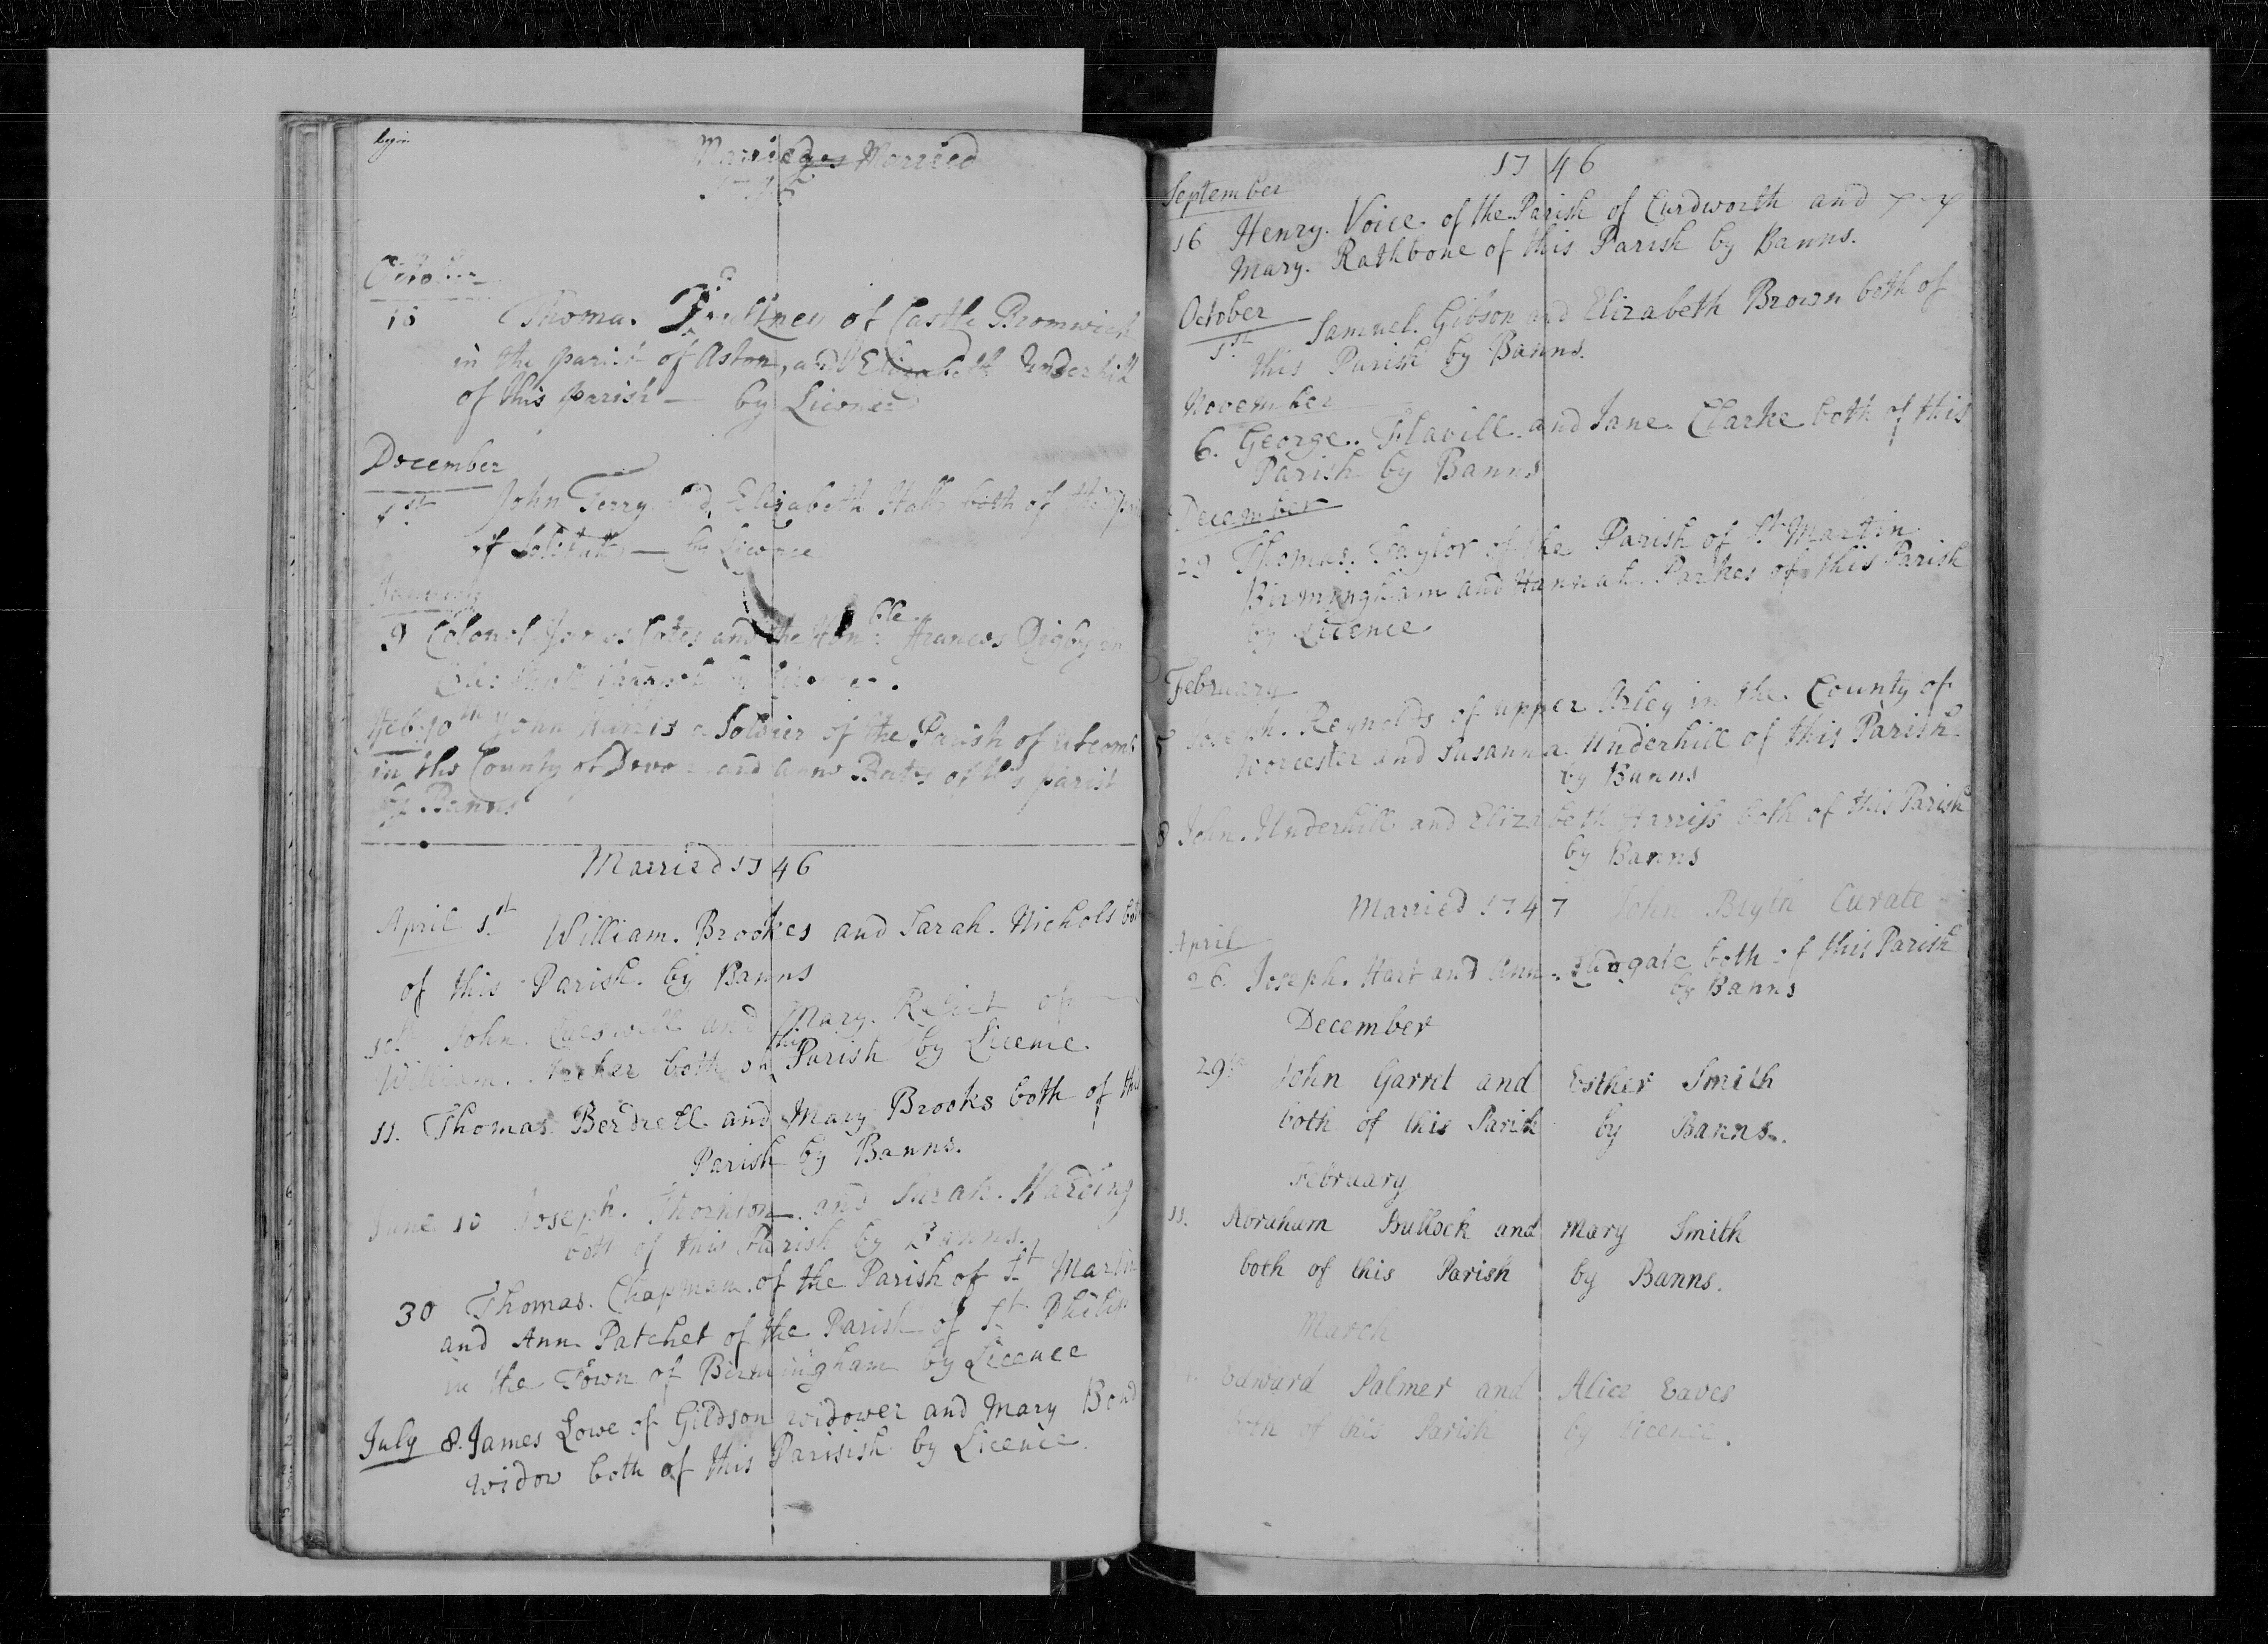 begin
Marriages Married
1745
October
10 Thomas Faulkner of Castle Bromwich
in the parish of Aston, and Elizabeth Underhill
of this parish — by Licence
December
1st John Terry and Elizabeth Hall both of the
of — by Licence
January
9 Colonel James Cotes and the Honble. Frances Digby in
by Licence.
Feb: 10th John Harris a Soldier of the Parish of
in the County of Devon and Anne Bates of this parish
by Banns
Married 1746
April 1st William. Brookes and Sarah. Nichols both
of this Parish. by Banns
10th John. and Mary. Relict of
William. both of this Parish by Licence.
11. Thomas. and Mary Brooks both of this
Parish by Banns.
June 10 Joseph. Thornton. and Sarah. Harding
both of this Parish by Banns.
30 Thomas. Chapman. of the Parish of St. Martin
and Ann Patchet of the Parish of St. Philip
in the Town of Birmingham by Licence
July 8. James Lowe of Gildson widower and Mary Bond
widow both of this Parisish by Licence.
1746
September
16 Henry. Voice. of the Parish of Curdworth and
Mary. Rathbone of this Parish by Banns.
October
1st Samuel. Gibson and Elizabeth Brown both of
this Parish by Banns.
November
6. George.. Flavill. and Jane. Clarke both of this
Parish by Banns
December
29 Thomas. Taylor of the Parish of St. Martin
Birmingham and Hannah. Parkes of this Parish
by Licence
February
5 Joseph. Reynolds of upper Arley in the County of
Worcester and Susanna. Underhill of this Parish
by Banns
8 John. Underhill and Elizabeth Harriss both of this Parish
by Banns
Married 1747 John Blyth Curate
April
26 Joseph. Hart and Ann. both of this Parish
by Banns
December
29th John Garret and Esther Smith
both of this Parish by Banns.
February
11. Abraham Bullock and Mary Smith
both of this Parish by Banns.
March
Edward Palmer and Alice Eaves
both of this Parish by licence.